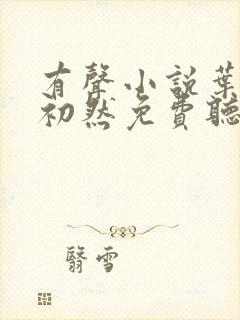 有聲小說葉
初然免費聽
翳雪